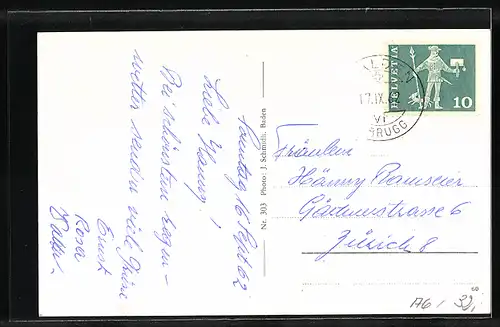 Sonntag 16 Sept 62
Liebe Hänny!
Bei schönstem Regen-
wetter senden viele Grüsse
Ernst
Rosa
Walter
Nr. 303 Photo: J. Schmuth, Baden
HELVETIA
10
17.IX.
VI
BRUGG
Fräulein
Hänny Ramseier
Gärtnerstrasse 6
Zürich 8
A6 / 32,-